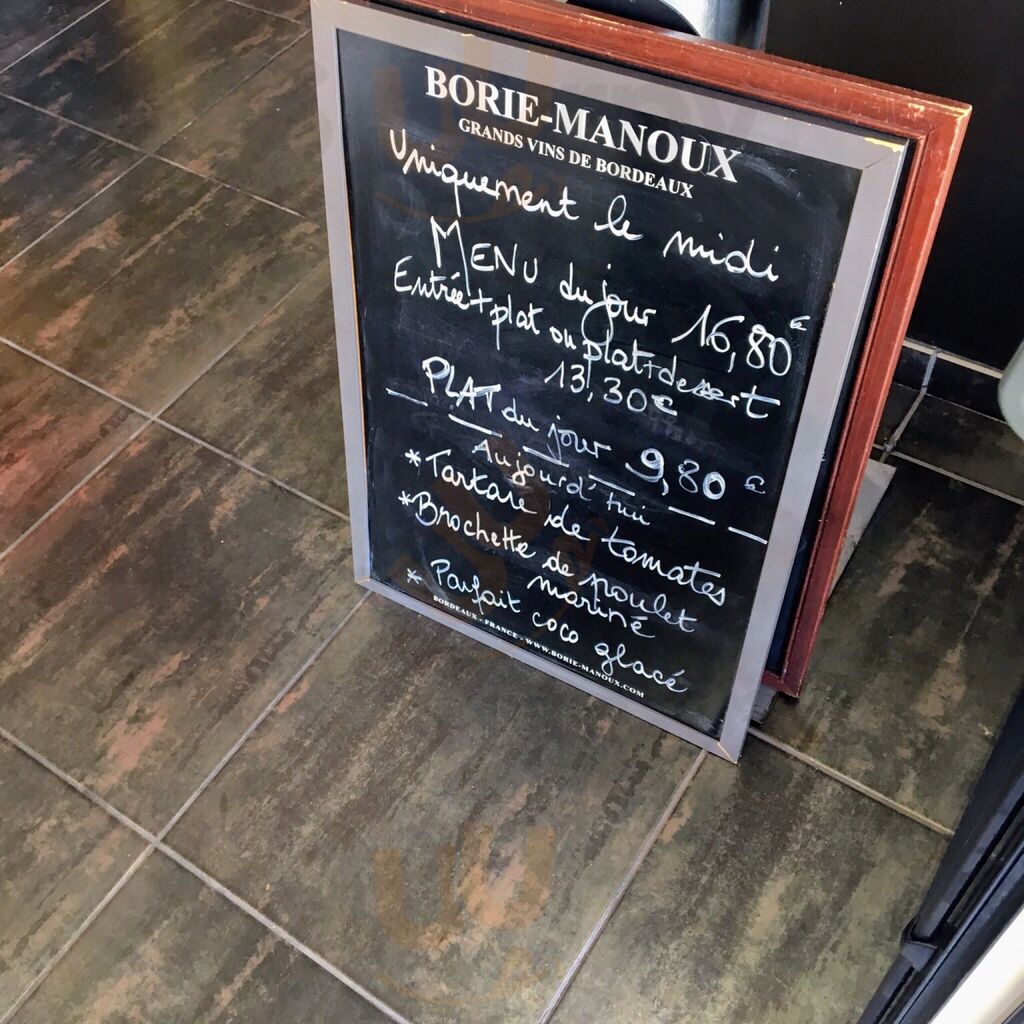 BORIE-MANOUX
GRANDS VINS DE BORDEAUX
Uniquement le midi
MENU du jour 16,80€
Entrée+plat ou plat+dessert
13,30€
PLAT du jour 9,80€
Aujourd'hui
*Tartare de tomates
*Brochette de poulet
mariné
* Parfait coco glacé
BORDEAUX - FRANCE - WWW.BORIE-MANOUX.COM